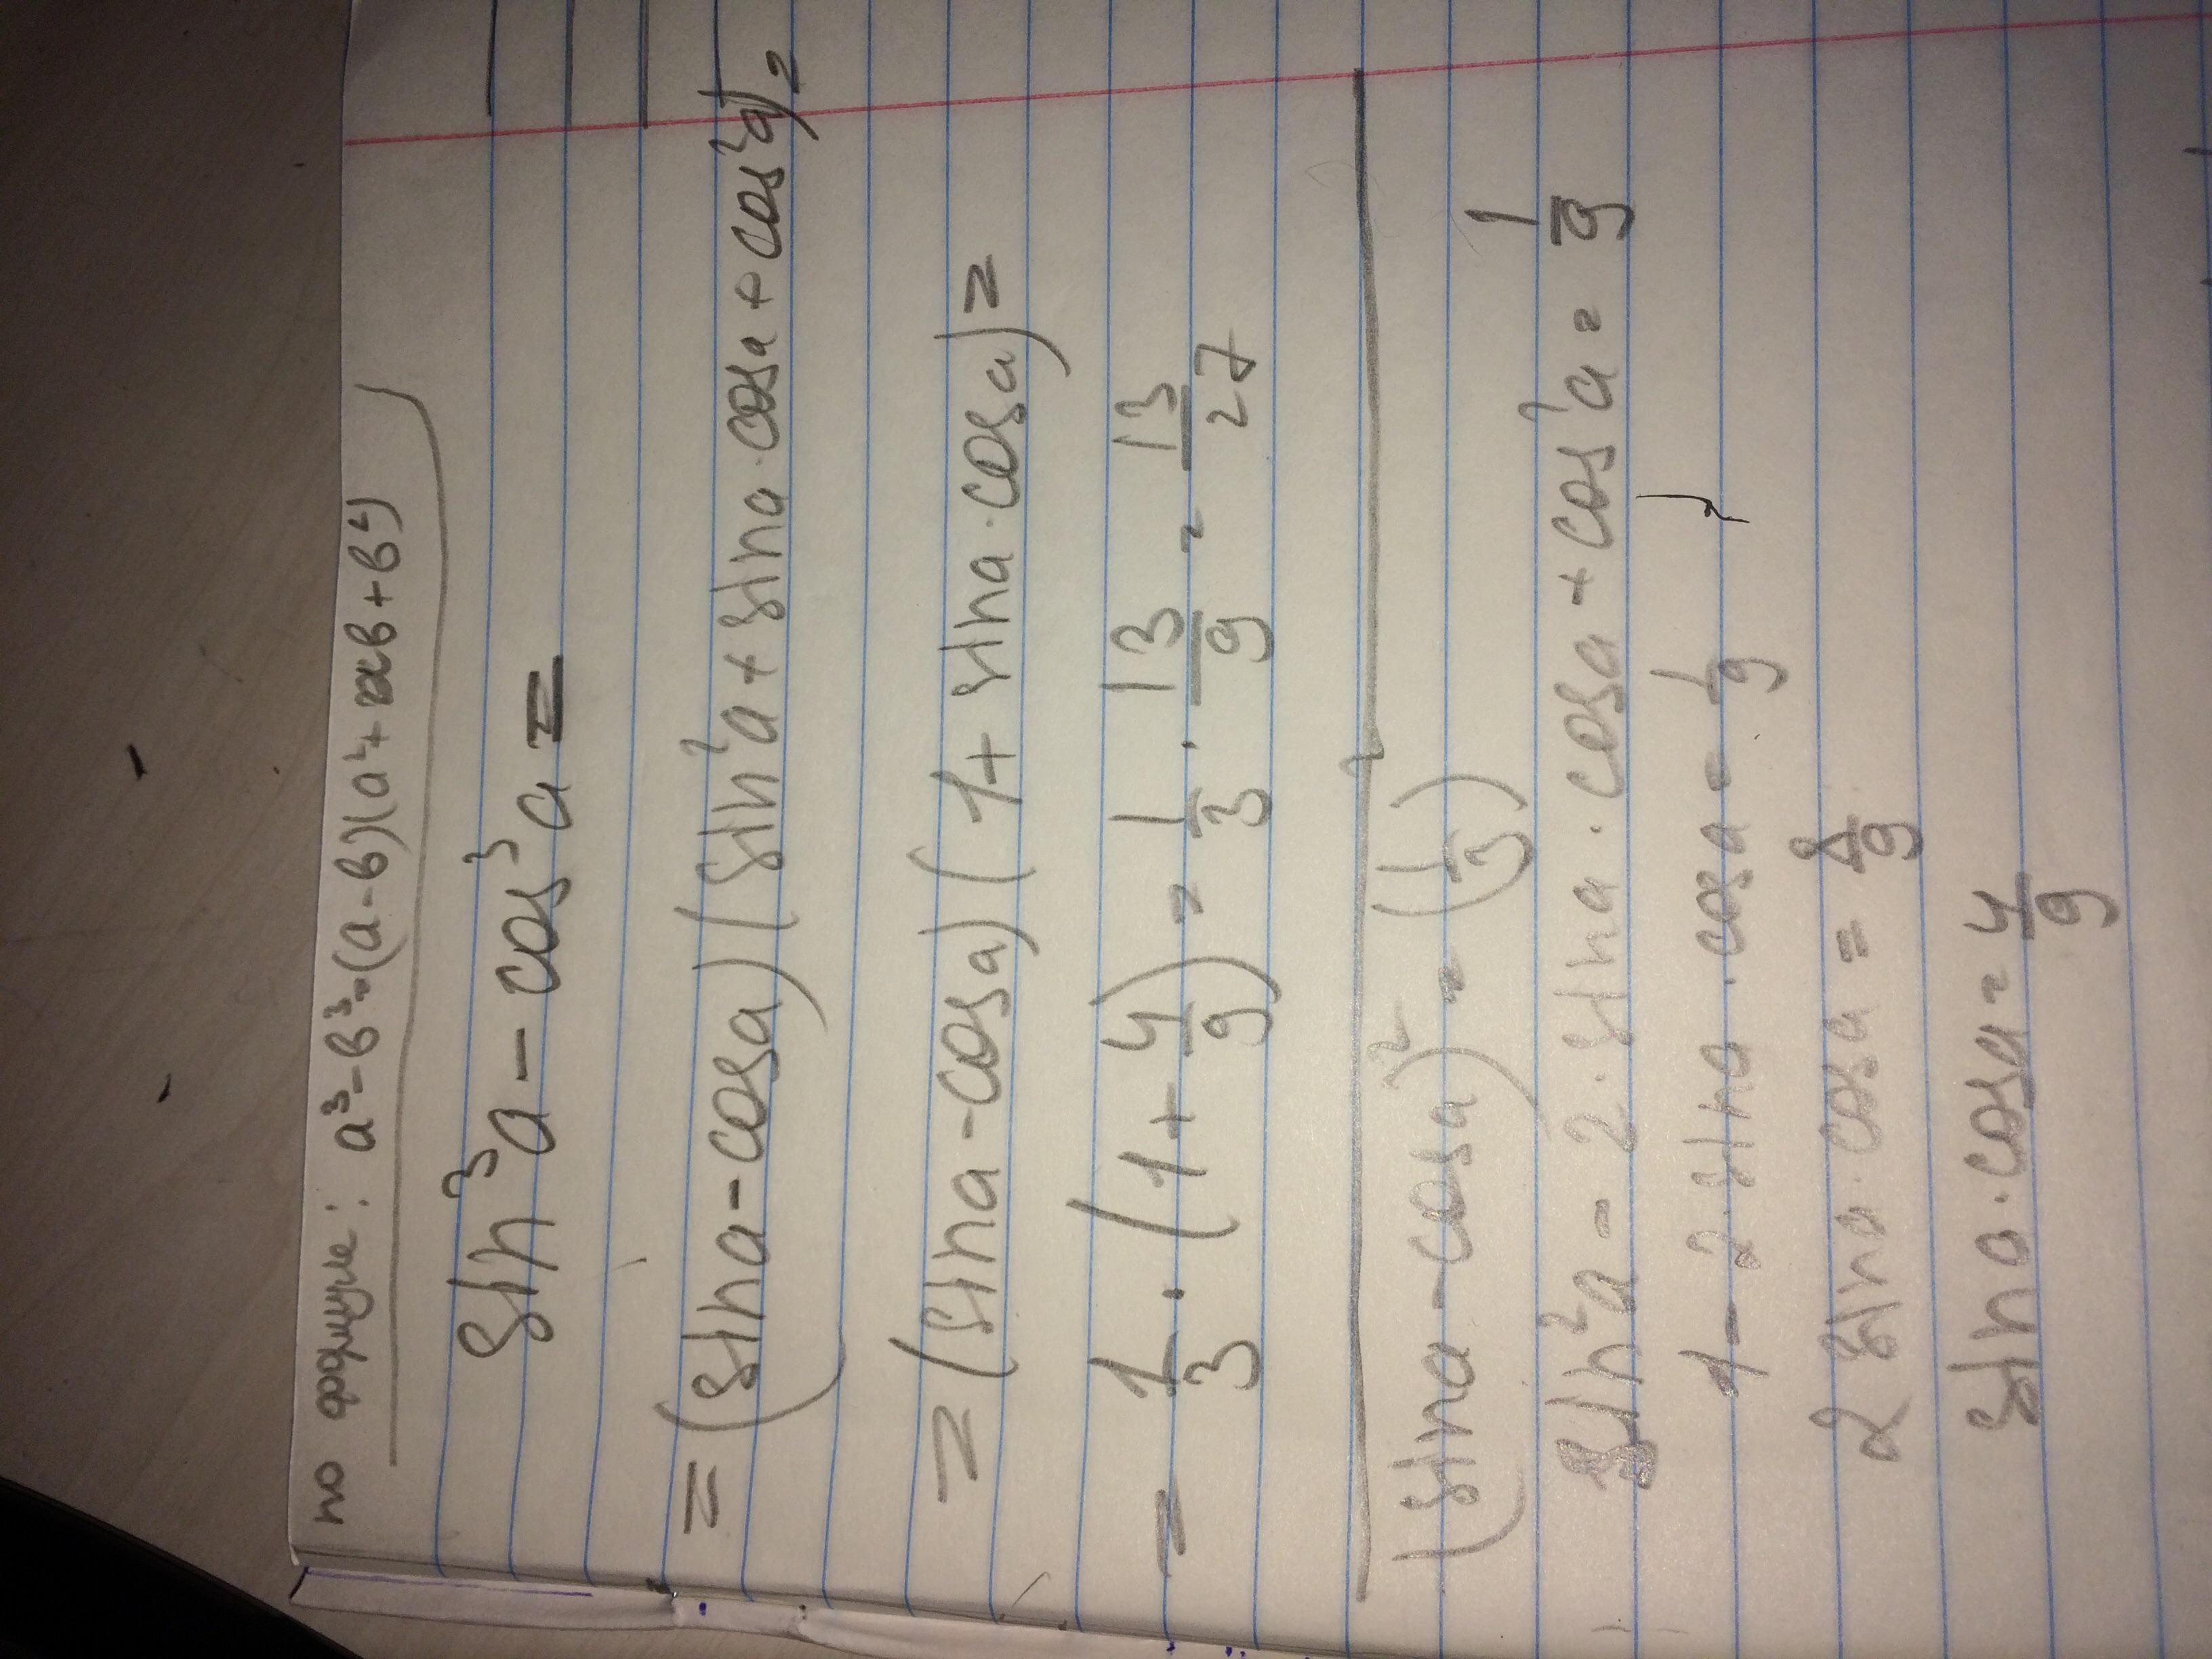 по формуле: a³-b³=(a-b)(a²+ab+b²)
sin³a-cos³a=
=(sina-cosa)(sin²a+sina·cosa+cos²a)=
=(sina-cosa)(1+sina·cosa)=
=1/3·(1+4/9)=1/3·13/9=13/27
(sina-cosa)²=(1/3)²
sin²a-2·sina·cosa+cos²a=1/9
1-2·sina·cosa=1/9
2sina·cosa=8/9
sina·cosa=4/9